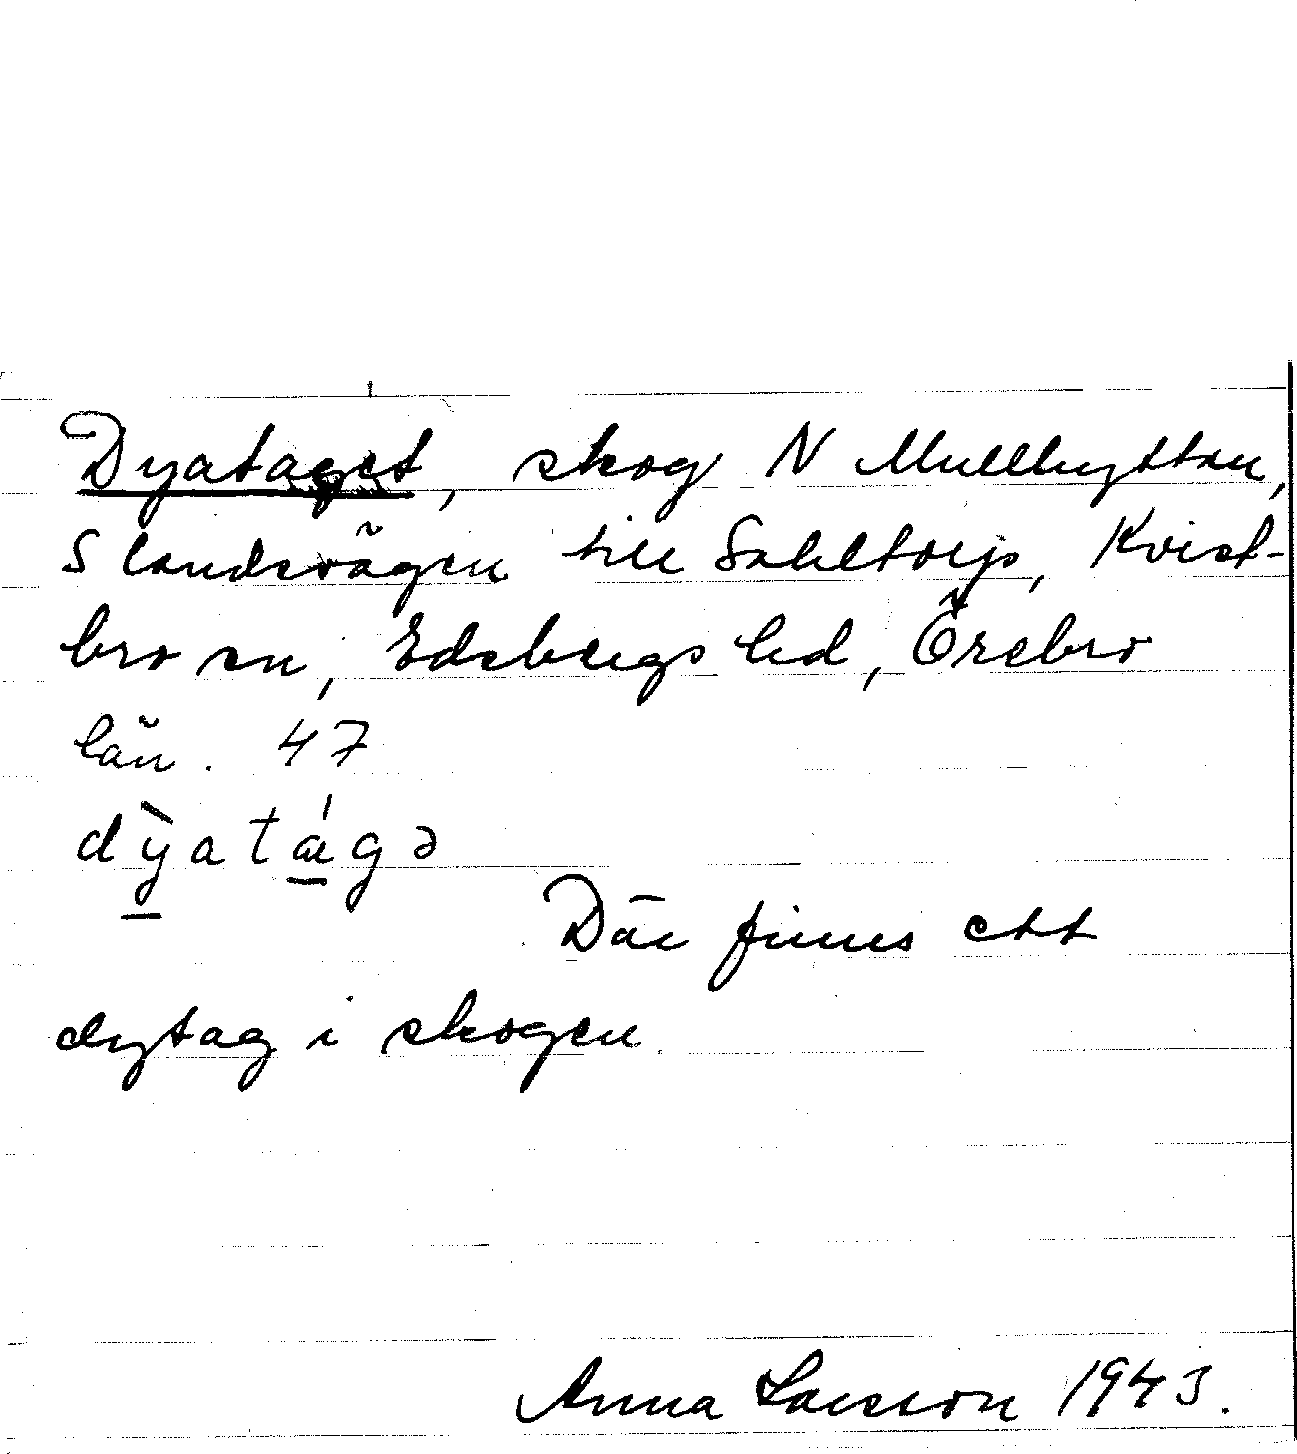 Dyataget, skog N Mullhyttan,
S landsvägen till Sahltorp, Kvist-
bro sn, Edsbergs hd, Örebro
län. 47
dỳ̱atá̱gə
Där finns ett
dytag i skogen.
Anna Larsson 1943.